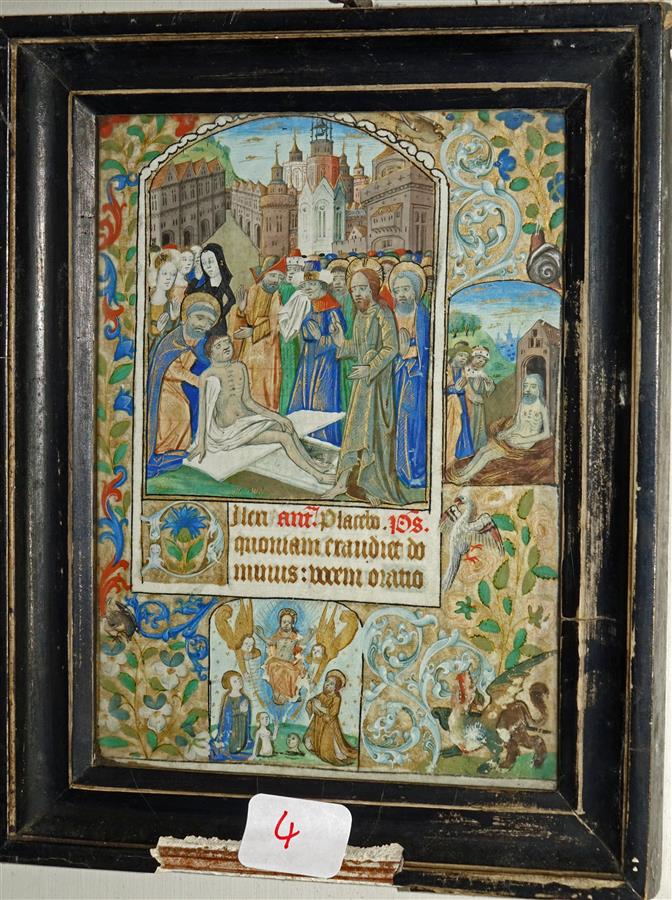 Dilexi añt. Placebo. p̄s.
quoniam exaudiet do
minus: vocem oratio
4